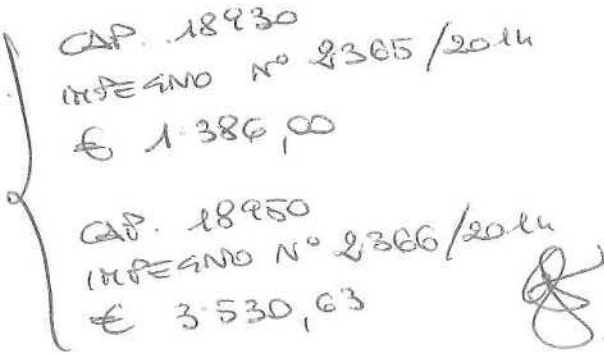 CAP. 18930
IMPEGNO N° 2365/2014
€ 1.386,00
CAP. 18950
IMPEGNO N° 2366/2014
€ 3.530,63